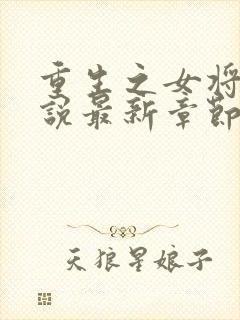 重生之女将
說最新章節
天狼星娘子